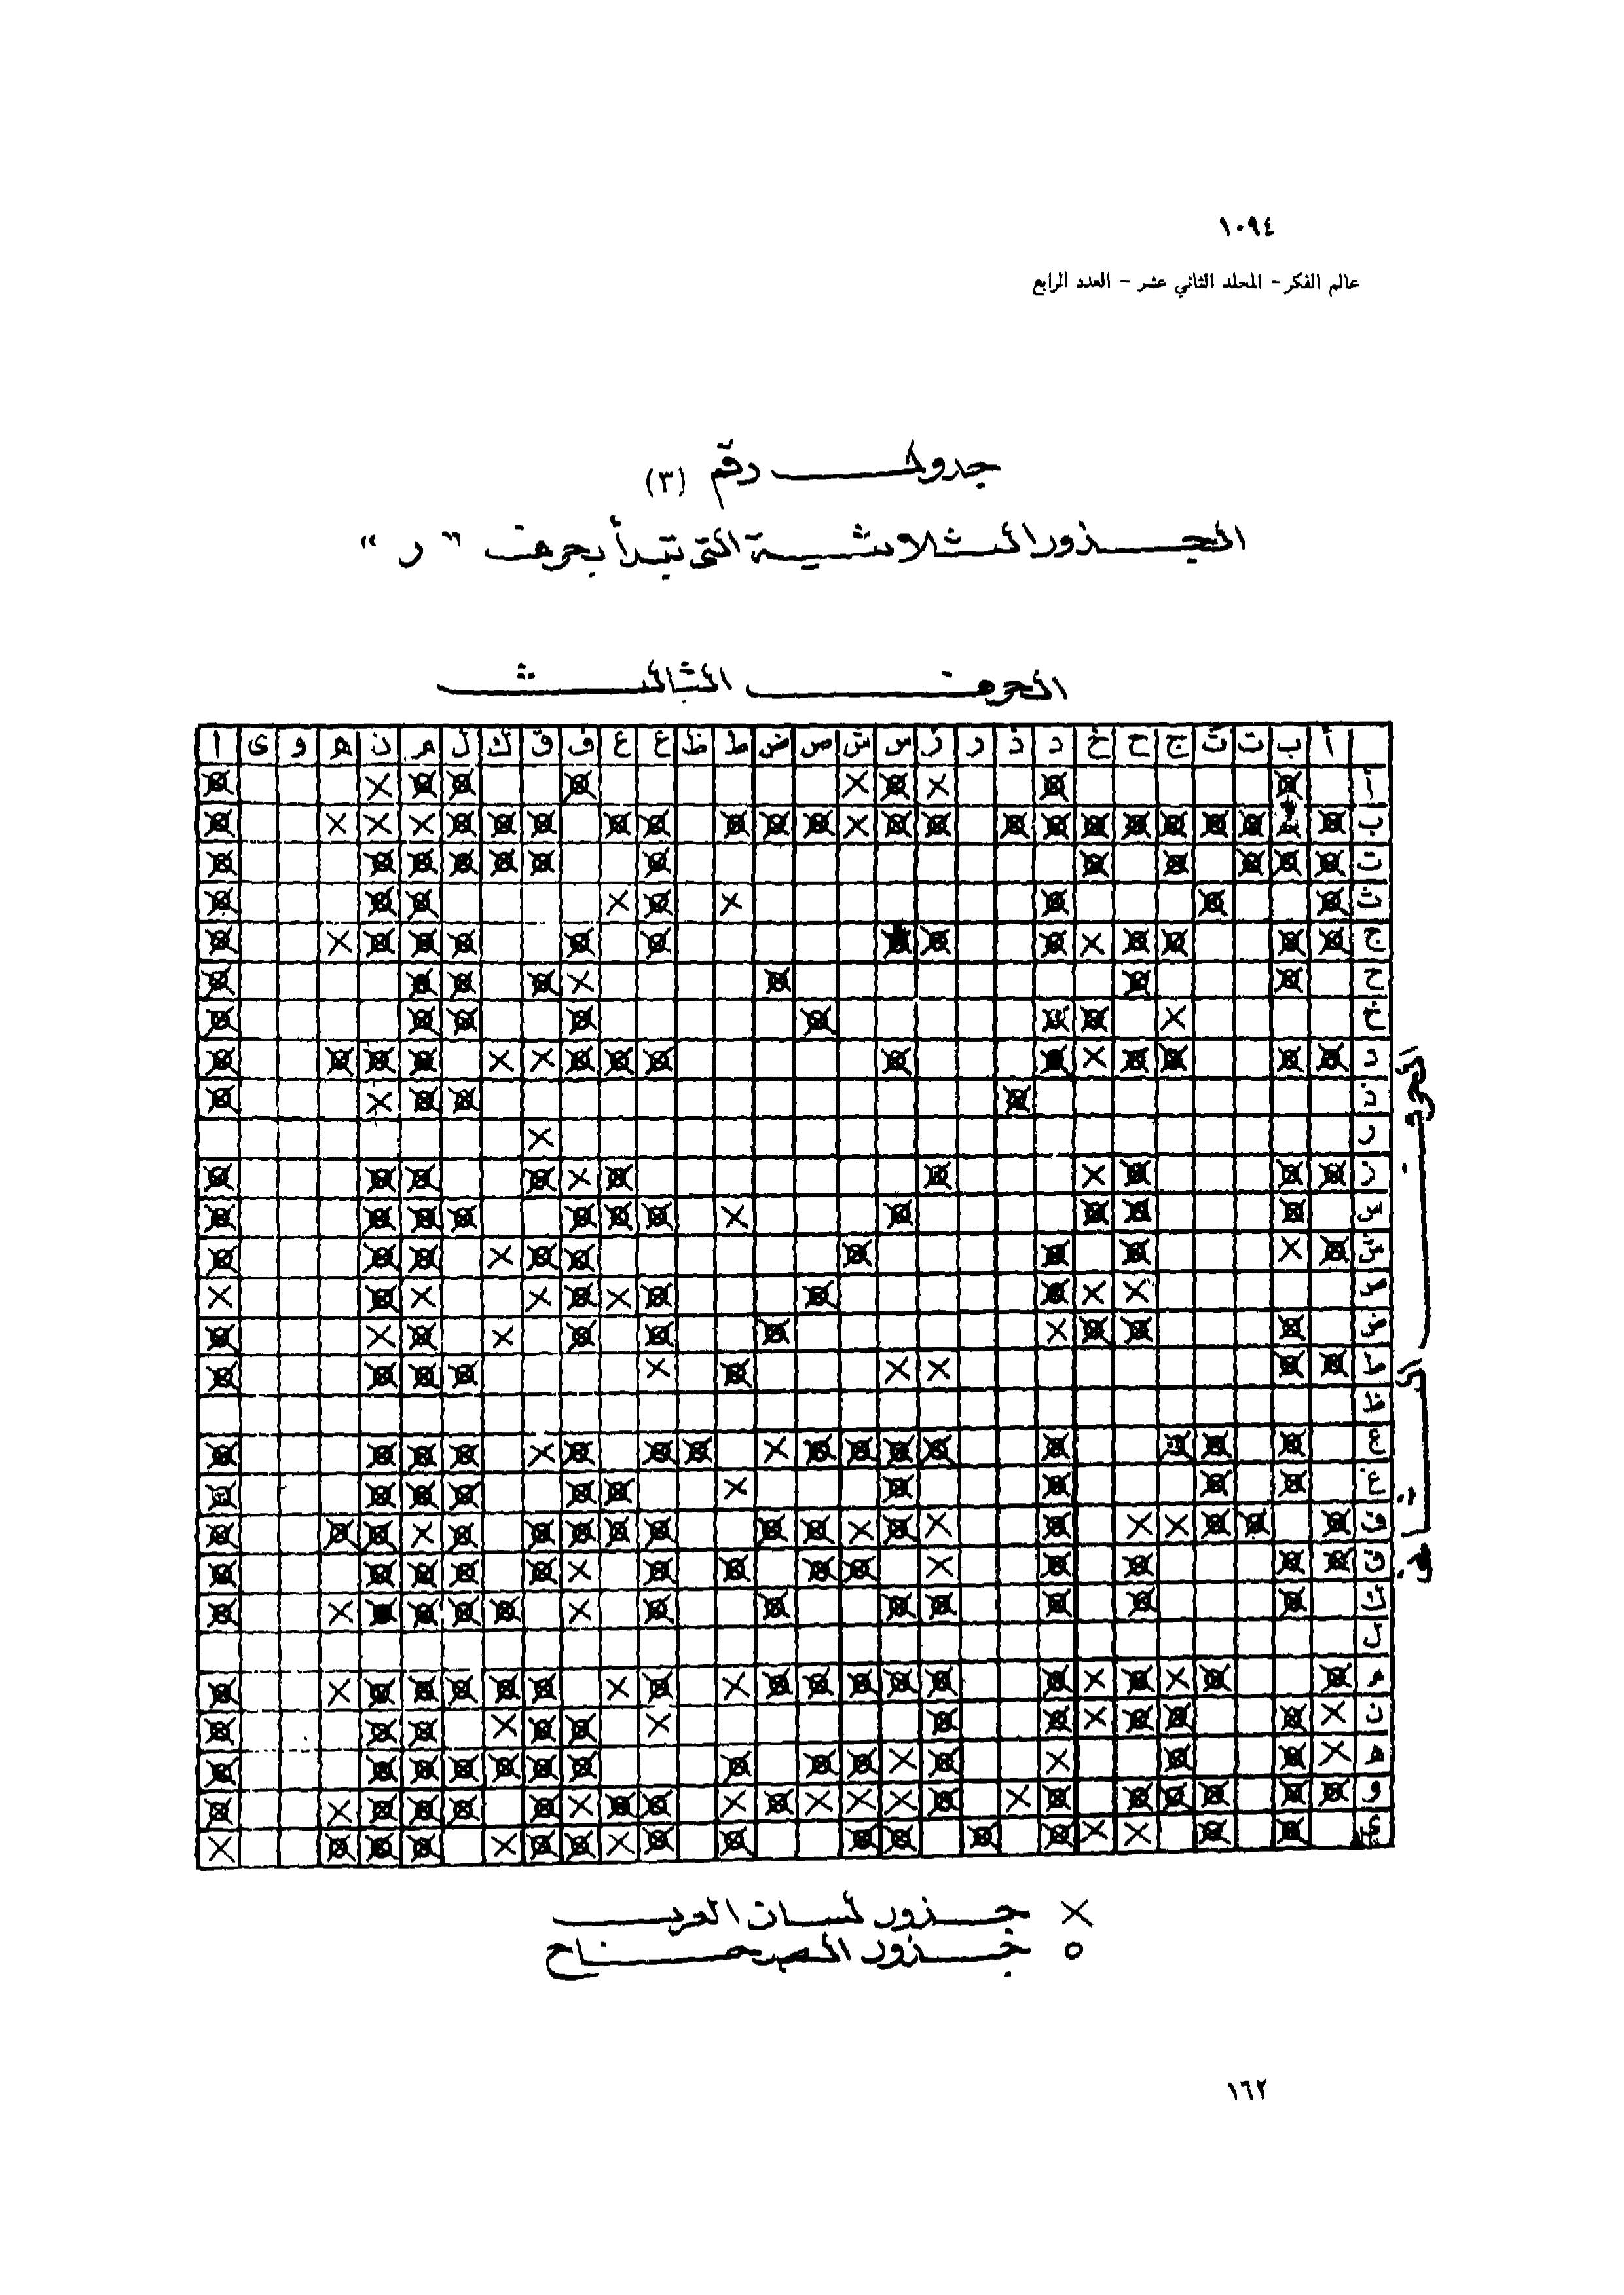 ١٠٩٤
عالم الفكر - المجلد الثاني عشر - العدد الرابع
جدول رقم (٣)
الجذور الثلاثية التي تبدأ بحرف "ر"
الحرف الثالث
أ ب ت ث ج ح خ د ذ ر ز س ش ص ض ط ظ ع غ ف ق ك ل م ن ه و ى ا
أ
ب
ت
ث
ج
ح
خ
د
ذ
ر
ز
س
ش
ص
ض
ط
ظ
ع
غ
ف
ق
ك
ل
م
ن
ه
و
ى
الحرف الثاني
× جذور لسان العرب
o جذور الصحاح
١٦٢